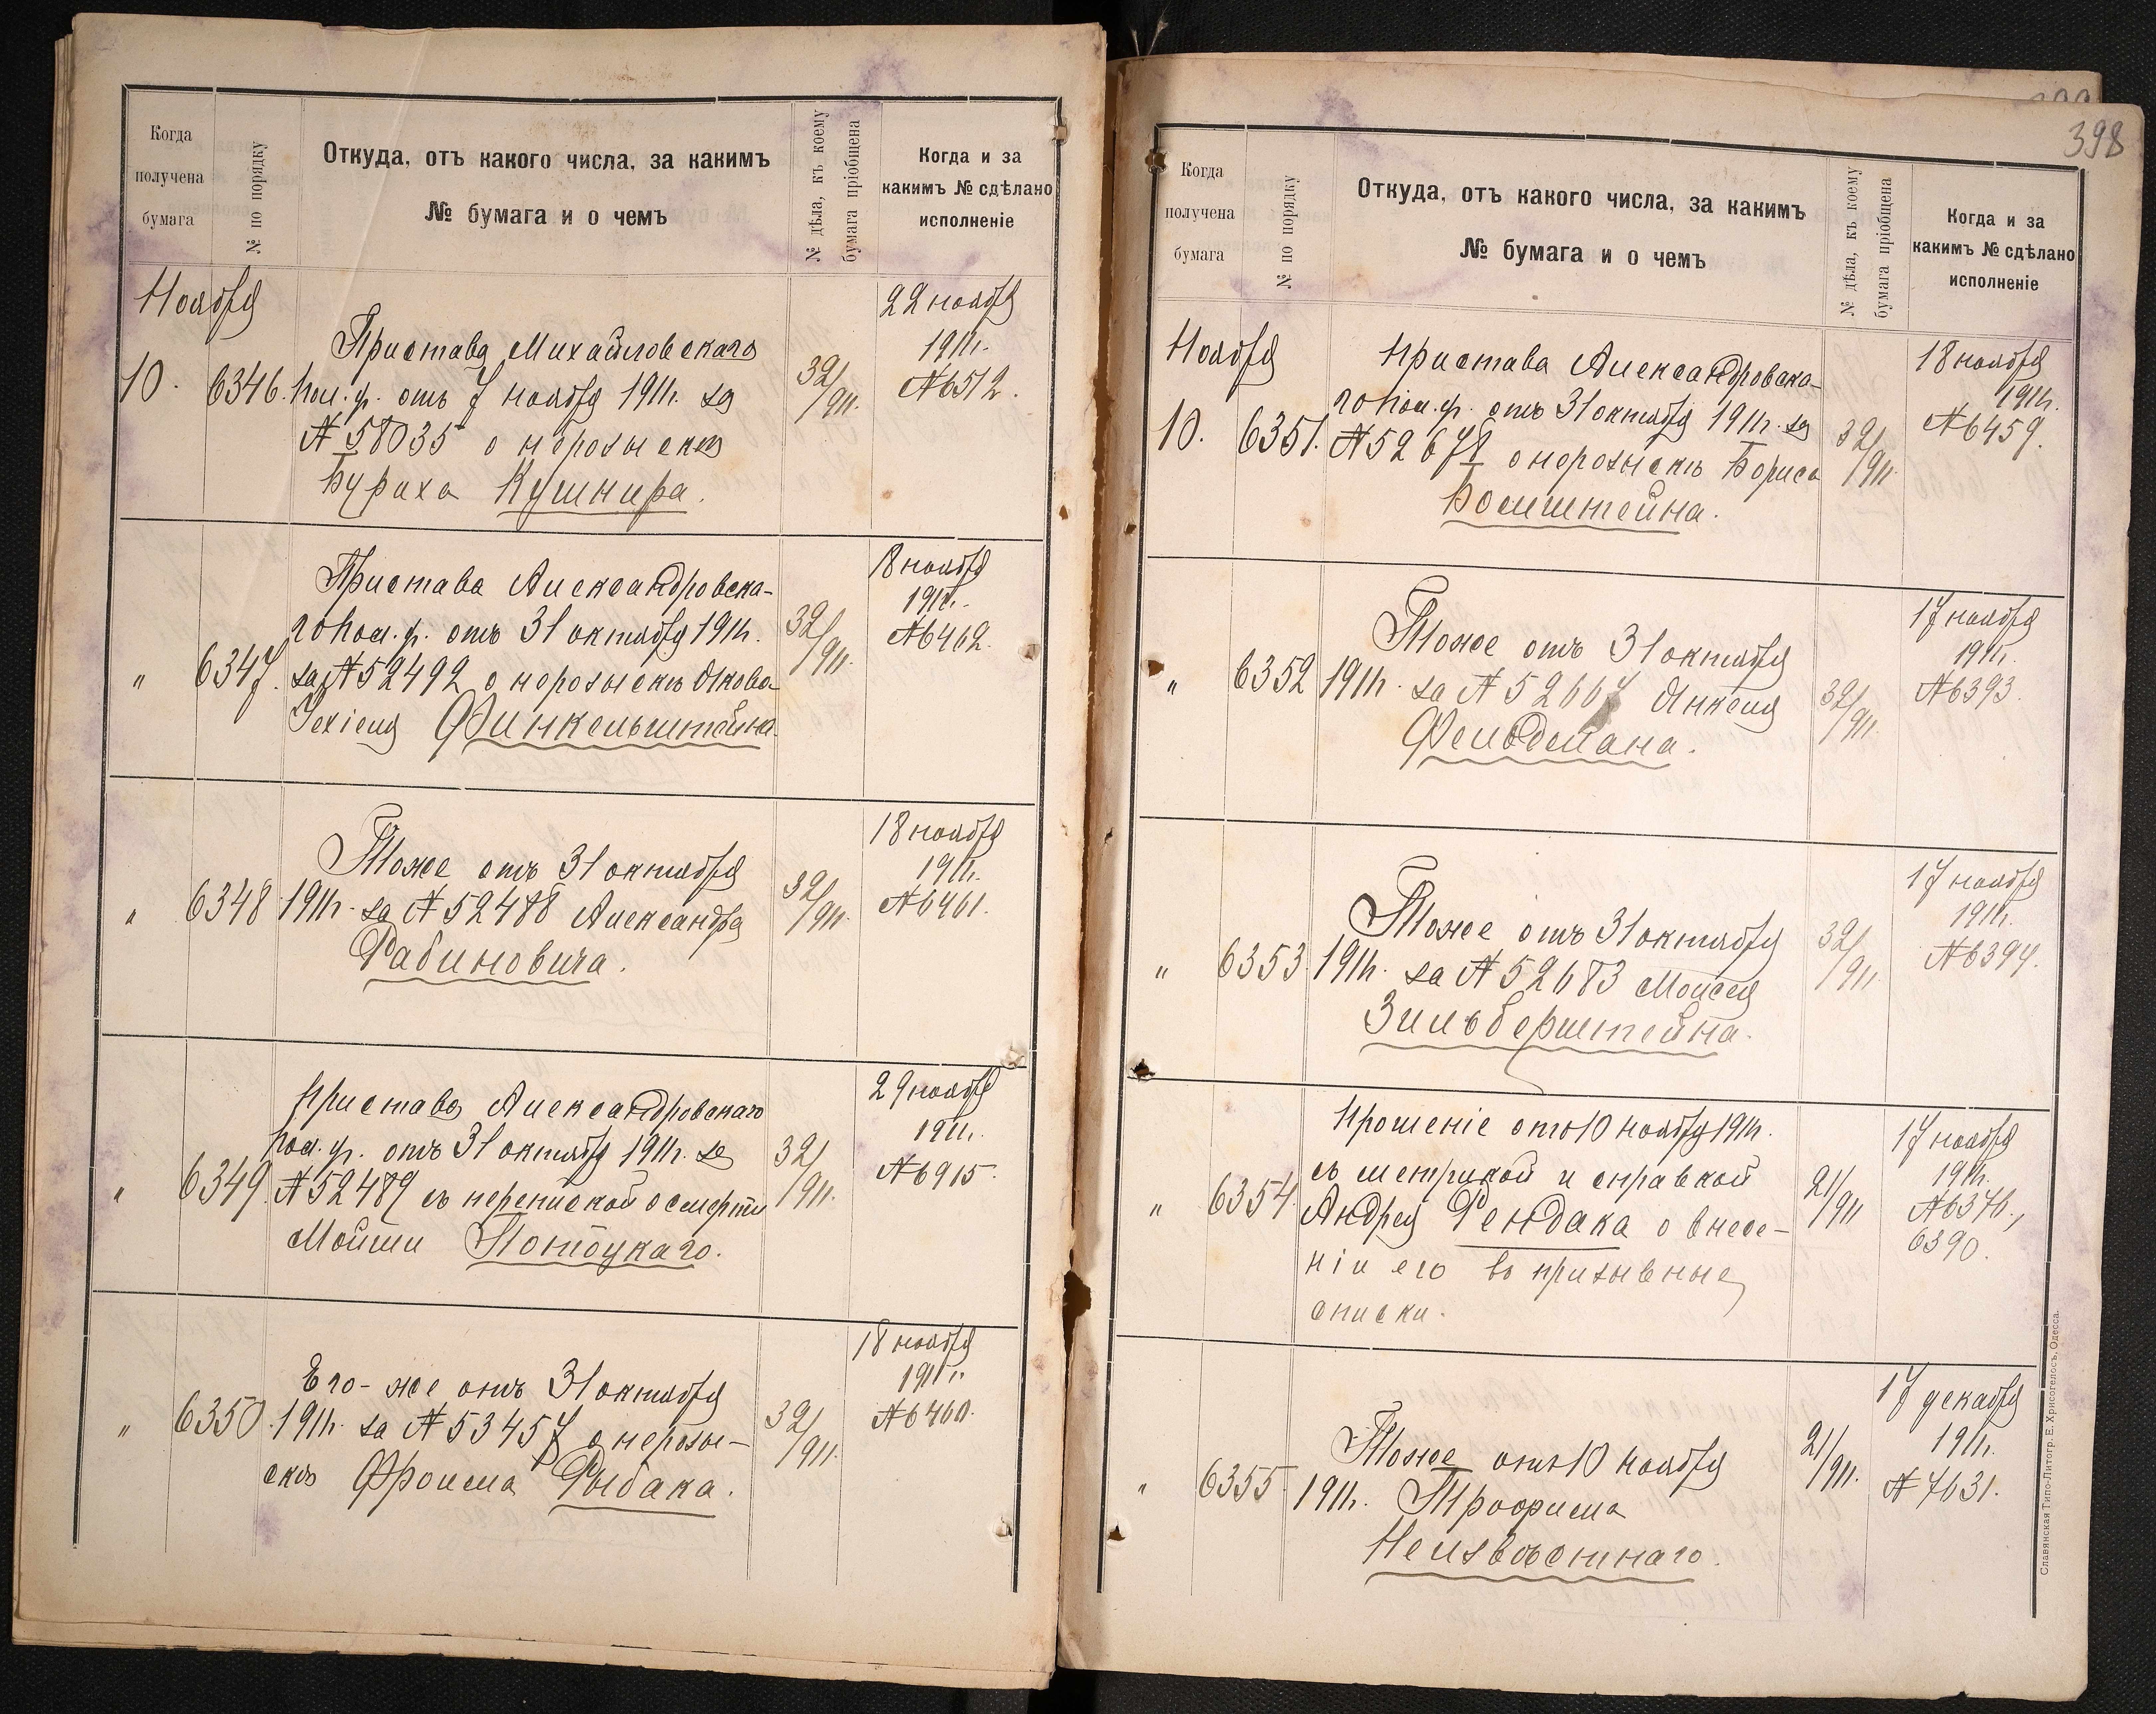 Когда
получена
бумага
№ по порядку
Откуда, отъ какого числа, за какимъ
№ бумага и о чемъ
№ дѣла, къ коему
бумага пріобщена
Когда и за
какимъ № сдѣлано
исполненіе
Ноября
10.
6346.
Пристава Михайловскаго
пол. уч. отъ 7 ноября 1911г. за
№ 58035 о нерозыскѣ
Буриха Кушнира.
32/911.
22 ноября
1911г.
№6512.
"
6347.
Пристава Александровска-
го пол. уч. отъ 31 октября 1911г.
за №52492 о нерозыскѣ Якова-
Іехіеля Финкельштейна.
32/911.
18 ноября
1911г.
№6462.
"
6348
Тоже отъ 31 октября
1911г. за №52488 Александра
Рабиновича.
32/911.
18 ноября
1911г.
№6461.
"
6349.
Пристава Александровскаго
пол. уч. отъ 31 октября 1911г. за
№52489 съ перепиской о смерти
Мойши Потоцкаго.
32/911.
29 ноября
1911г.
№6915.
"
6350.
Его-же отъ 31 октября
1911г. за №53457 о нерозы-
скѣ Фроима Рыбака.
32/911.
18 ноября
1911г.
№6460.
398
Когда
получена
бумага
№ по порядку
Откуда, отъ какого числа, за какимъ
№ бумага и о чемъ
№ дѣла, къ коему
бумага пріобщена
Когда и за
какимъ № сдѣлано
исполненіе
Ноября
10.
6351.
Пристава Александровска-
го пол. уч. отъ 31 октября 1911г. за
о нерозыскѣ Бориса
32/911.
18 ноября
1911г.
№6459.
"
6352
Тоже отъ 31 октября
1911г. за Янкеля
Фельдмана.
32/911.
17 ноября
1911г.
№6393.
"
6353.
Тоже отъ 31 октября
1911г. за №52683 Мойсея
Зильберштейна.
32/911.
17 ноября
1911г.
№6394.
"
6354.
Прошеніе отъ 10 ноября 1911г.
съ метрикой и справкой
Андрея Рендака о внесе-
ніи его въ призывные
списки.
21/911
17 ноября
1911г.
6390.
"
6355
Тоже отъ 10 ноября
1911г. Трофима
Неизвѣстнаго.
21/911.
17 декабря
1911г.
№7631.
Славянская Типо-Литогр. Е. Хрисогелосъ, Одесса.